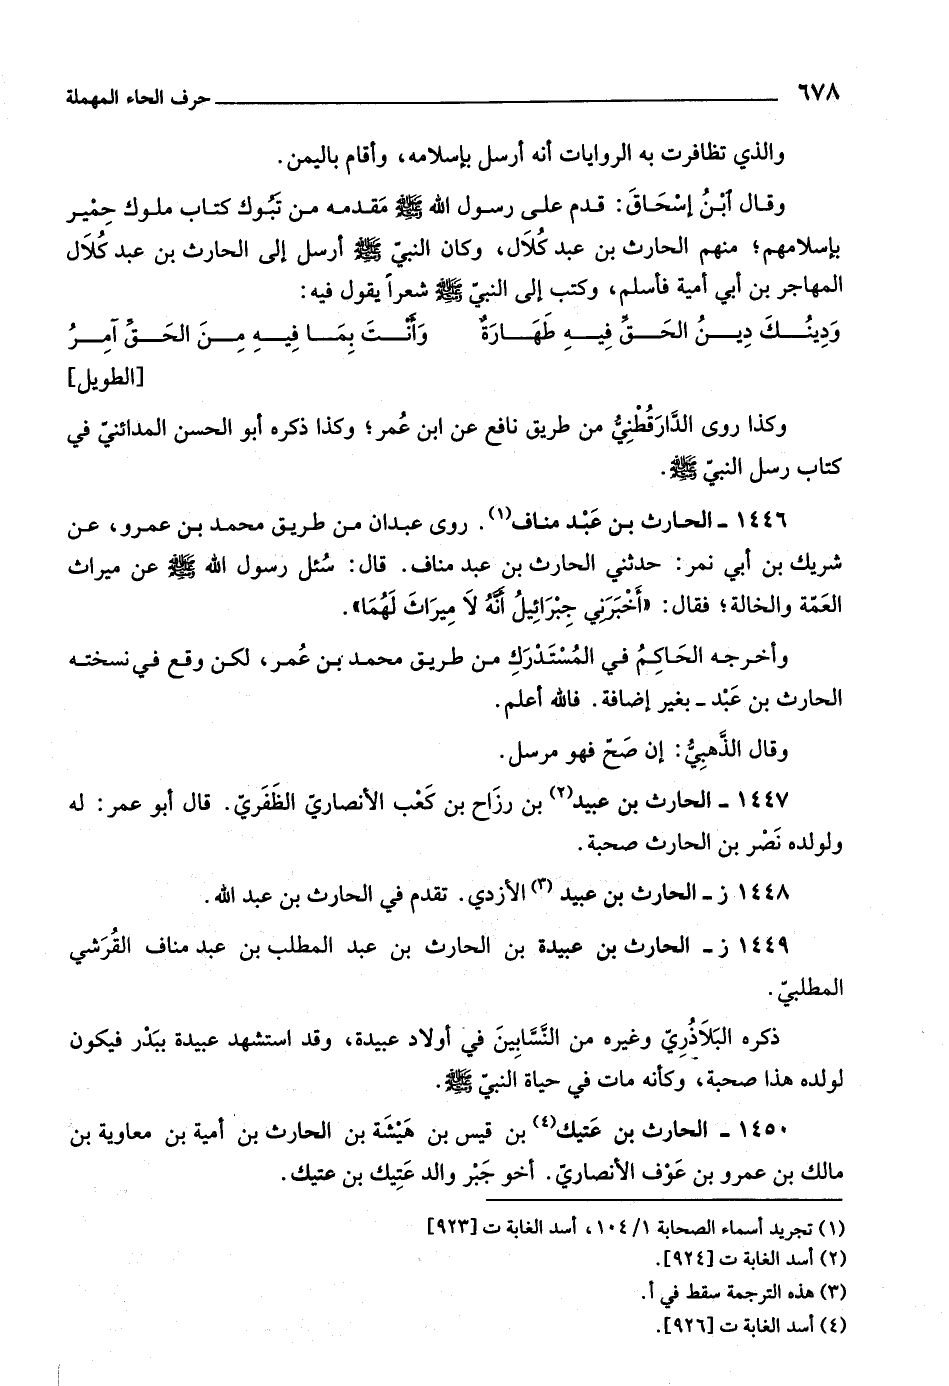 ٦٧٨ ــــــــــــــــــــ حرف الحاء المهملة
والذي تظافرت به الروايات أنه أرسل بإسلامه، وأقام باليمن.
وقال ٱبْنُ إسْحَاقَ: قدم على رسول الله ﷺ مَقدمه من تَبُوك كتاب ملوك حِمْير
بإسلامهم؛ منهم الحارث بن عبد كُلَال، وكان النبيّ ﷺ أرسل إلى الحارث بن عبد كلَال
المهاجر بن أبي أمية فأسلم، وكتب إلى النبيّ ﷺ شعراً يقول فيه:
وَدِينُـكَ دِيـنُ الحَـقِّ فِيـهِ طَهَـارَةٌ وَأَنْـتَ بِمَـا فِيـهِ مِـنَ الحَـقِّ آمِـرُ
[الطويل]
وكذا روى الدَّارَقُطْنِيُّ من طريق نافع عن ابن عُمر؛ وكذا ذكره أبو الحسن المدائنيّ في
كتاب رسل النبيّ ﷺ.
١٤٤٦ ـ الحارث بن عَبْد مناف(١). روى عبدان من طريق محمد بن عمرو، عن
شريك بن أبي نمر: حدثني الحارث بن عبد مناف. قال: سُئل رسول الله ﷺ عن ميراث
العَمّة والخالة؛ فقال: «أَخْبَرَنِي جِبْرَائِيلُ أَنَّهُ لَا مِيرَاثَ لَهُمَا».
وأخرجه الحَاكِمُ في المُسْتَدْرَكِ من طريق محمد بن عُمر، لكن وقع في نسخته
الحارث بن عَبْد ـ بغير إضافة. فالله أعلم.
وقال الذَّهبِيُّ: إن صَحّ فهو مرسل.
١٤٤٧ ـ الحارث بن عبيد(٢) بن رزَاح بن كَعْب الأنصاريّ الظَفَريّ. قال أبو عمر: له
ولولده نَصْر بن الحارث صحبة.
١٤٤٨ ز ـ الحارث بن عبيد (٣) الأزدي. تقدم في الحارث بن عبد الله.
١٤٤٩ ز ـ الحارث بن عبيدة بن الحارث بن عبد المطلب بن عبد مناف القُرَشي
المطلبيّ.
ذكره البَلَاذُرِيّ وغيره من النَّسَّابِينَ في أولاد عبيدة، وقد استشهد عبيدة ببَدْر فيكون
لولده هذا صحبة، وكأنه مات في حياة النبيّ ﷺ.
١٤٥٠ ـ الحارث بن عَتيك(٤) بن قيس بن هَيْشَة بن الحارث بن أمية بن معاوية بن
مالك بن عمرو بن عَوْف الأنصاريّ. أخو جَبْر والد عَتِيك بن عتيك.
(١) تجريد أسماء الصحابة ١/ ١٠٤، أسد الغابة ت [٩٢٣]
(٢) أسد الغابة ت [٩٢٤].
(٣) هذه الترجمة سقط في أ.
(٤) أسد الغابة ت [٩٢٦].